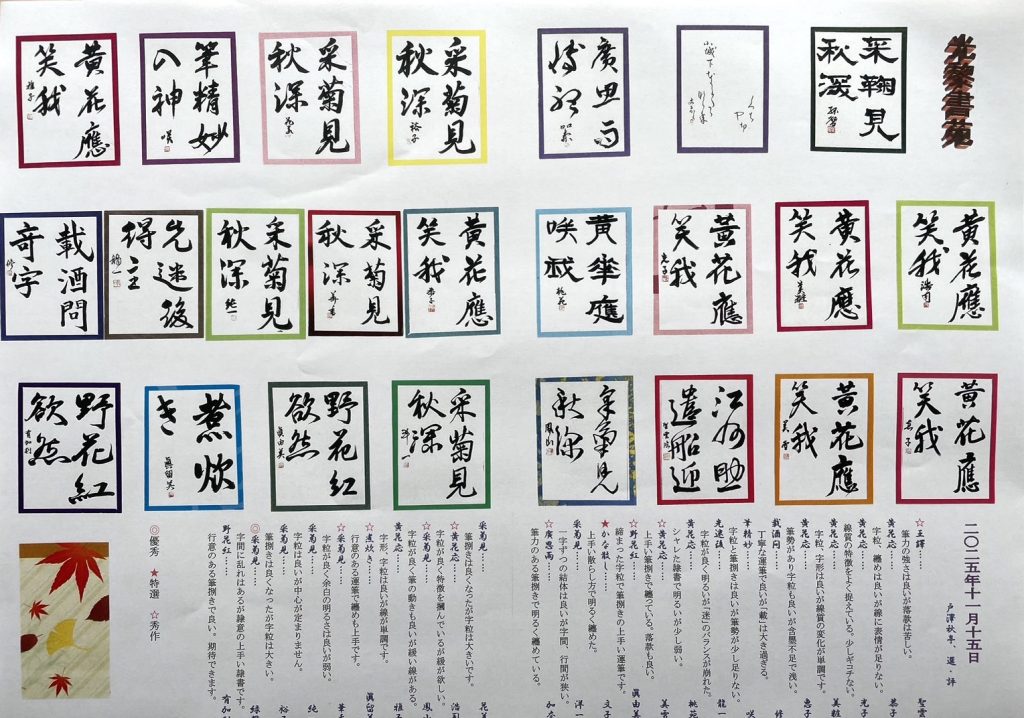 光黎書苑
采鞠見
秋深
廣思而
博禮
采菊見
秋深
裕子
采菊見
秋深
筆精妙
入神
咲
黃花應
笑我
雅子
黃花應
笑我
浩司
黃花應
笑我
美粧
黃花應
笑我
光子
黃華應
咲我
桃苑
黃花應
笑我
采菊見
秋深
采菊見
秋深
純一
先迷後
得主
龍一
載酒問
奇字
修
黃花應
笑我
恭子
黃花應
笑我
美雲
江州助
遣船迎
采菊見
秋深
鳳山
采菊見
秋深
野花紅
欲然
眞由美
煮炊
き
眞留美
野花紅
欲然
有加利
二〇二五年十一月十五日
戸澤秋亭、選・評
筆力の強さは良いが落款は苦しい。
黄花応……
字粒、纏めは良いが線に表情が足りない。
黄花応……
線質の特徴をよく捉えている。少しギコチない。
黄花応……
字粒、字形は良いが線質の変化が単調です。
黄花応……
筆勢があり字粒も良いが含墨不足で浅い。
載酒問……
丁寧な運筆で良いが「載」は大き過ぎる。
筆精妙……
字粒と筆捌きは良いが筆勢が少し足りない。
先迷後……
字粒が良く明るいが「迷」のバランスが崩れた。
黄花応……
シャレた隷書で明るいが少し弱い。
☆黄花応……
上手い筆捌きで纏っている。落款も良い。
☆野花紅……
締まった字粒で筆捌きの上手い運筆です。
★かな散し……
上手い散らし方で明るく纏めた。
采菊見……
一字ずつの結体は良いが字間、行間が狭い。
☆廣思而……
筆力のある筆捌きで明るく纏めている。
采菊見……
筆捌きは良くなったが字粒は大きいです。
☆黄花応……
字粒が良く特徴を掴んでいるが緩が欲しい。
☆采菊見……
字粒が良く筆の動きも良いが緩い線がある。
黄花応……
字形、字粒は良いが線が単調です。
☆煮炊き……
行意のある運筆で纏めも上手です。
☆采菊見……
字粒が良く余白の明るさは良いが弱い。
采菊見……
字粒は良いが中心が定まりません。
采菊見……
筆捌きは良くなったが字粒は大きい。
◎采菊見……
字間に乱れはあるが隷意の上手い隷書です。
野花紅……
行意のある筆捌きで良い。期待できます。
◎優秀　★特選　☆秀作